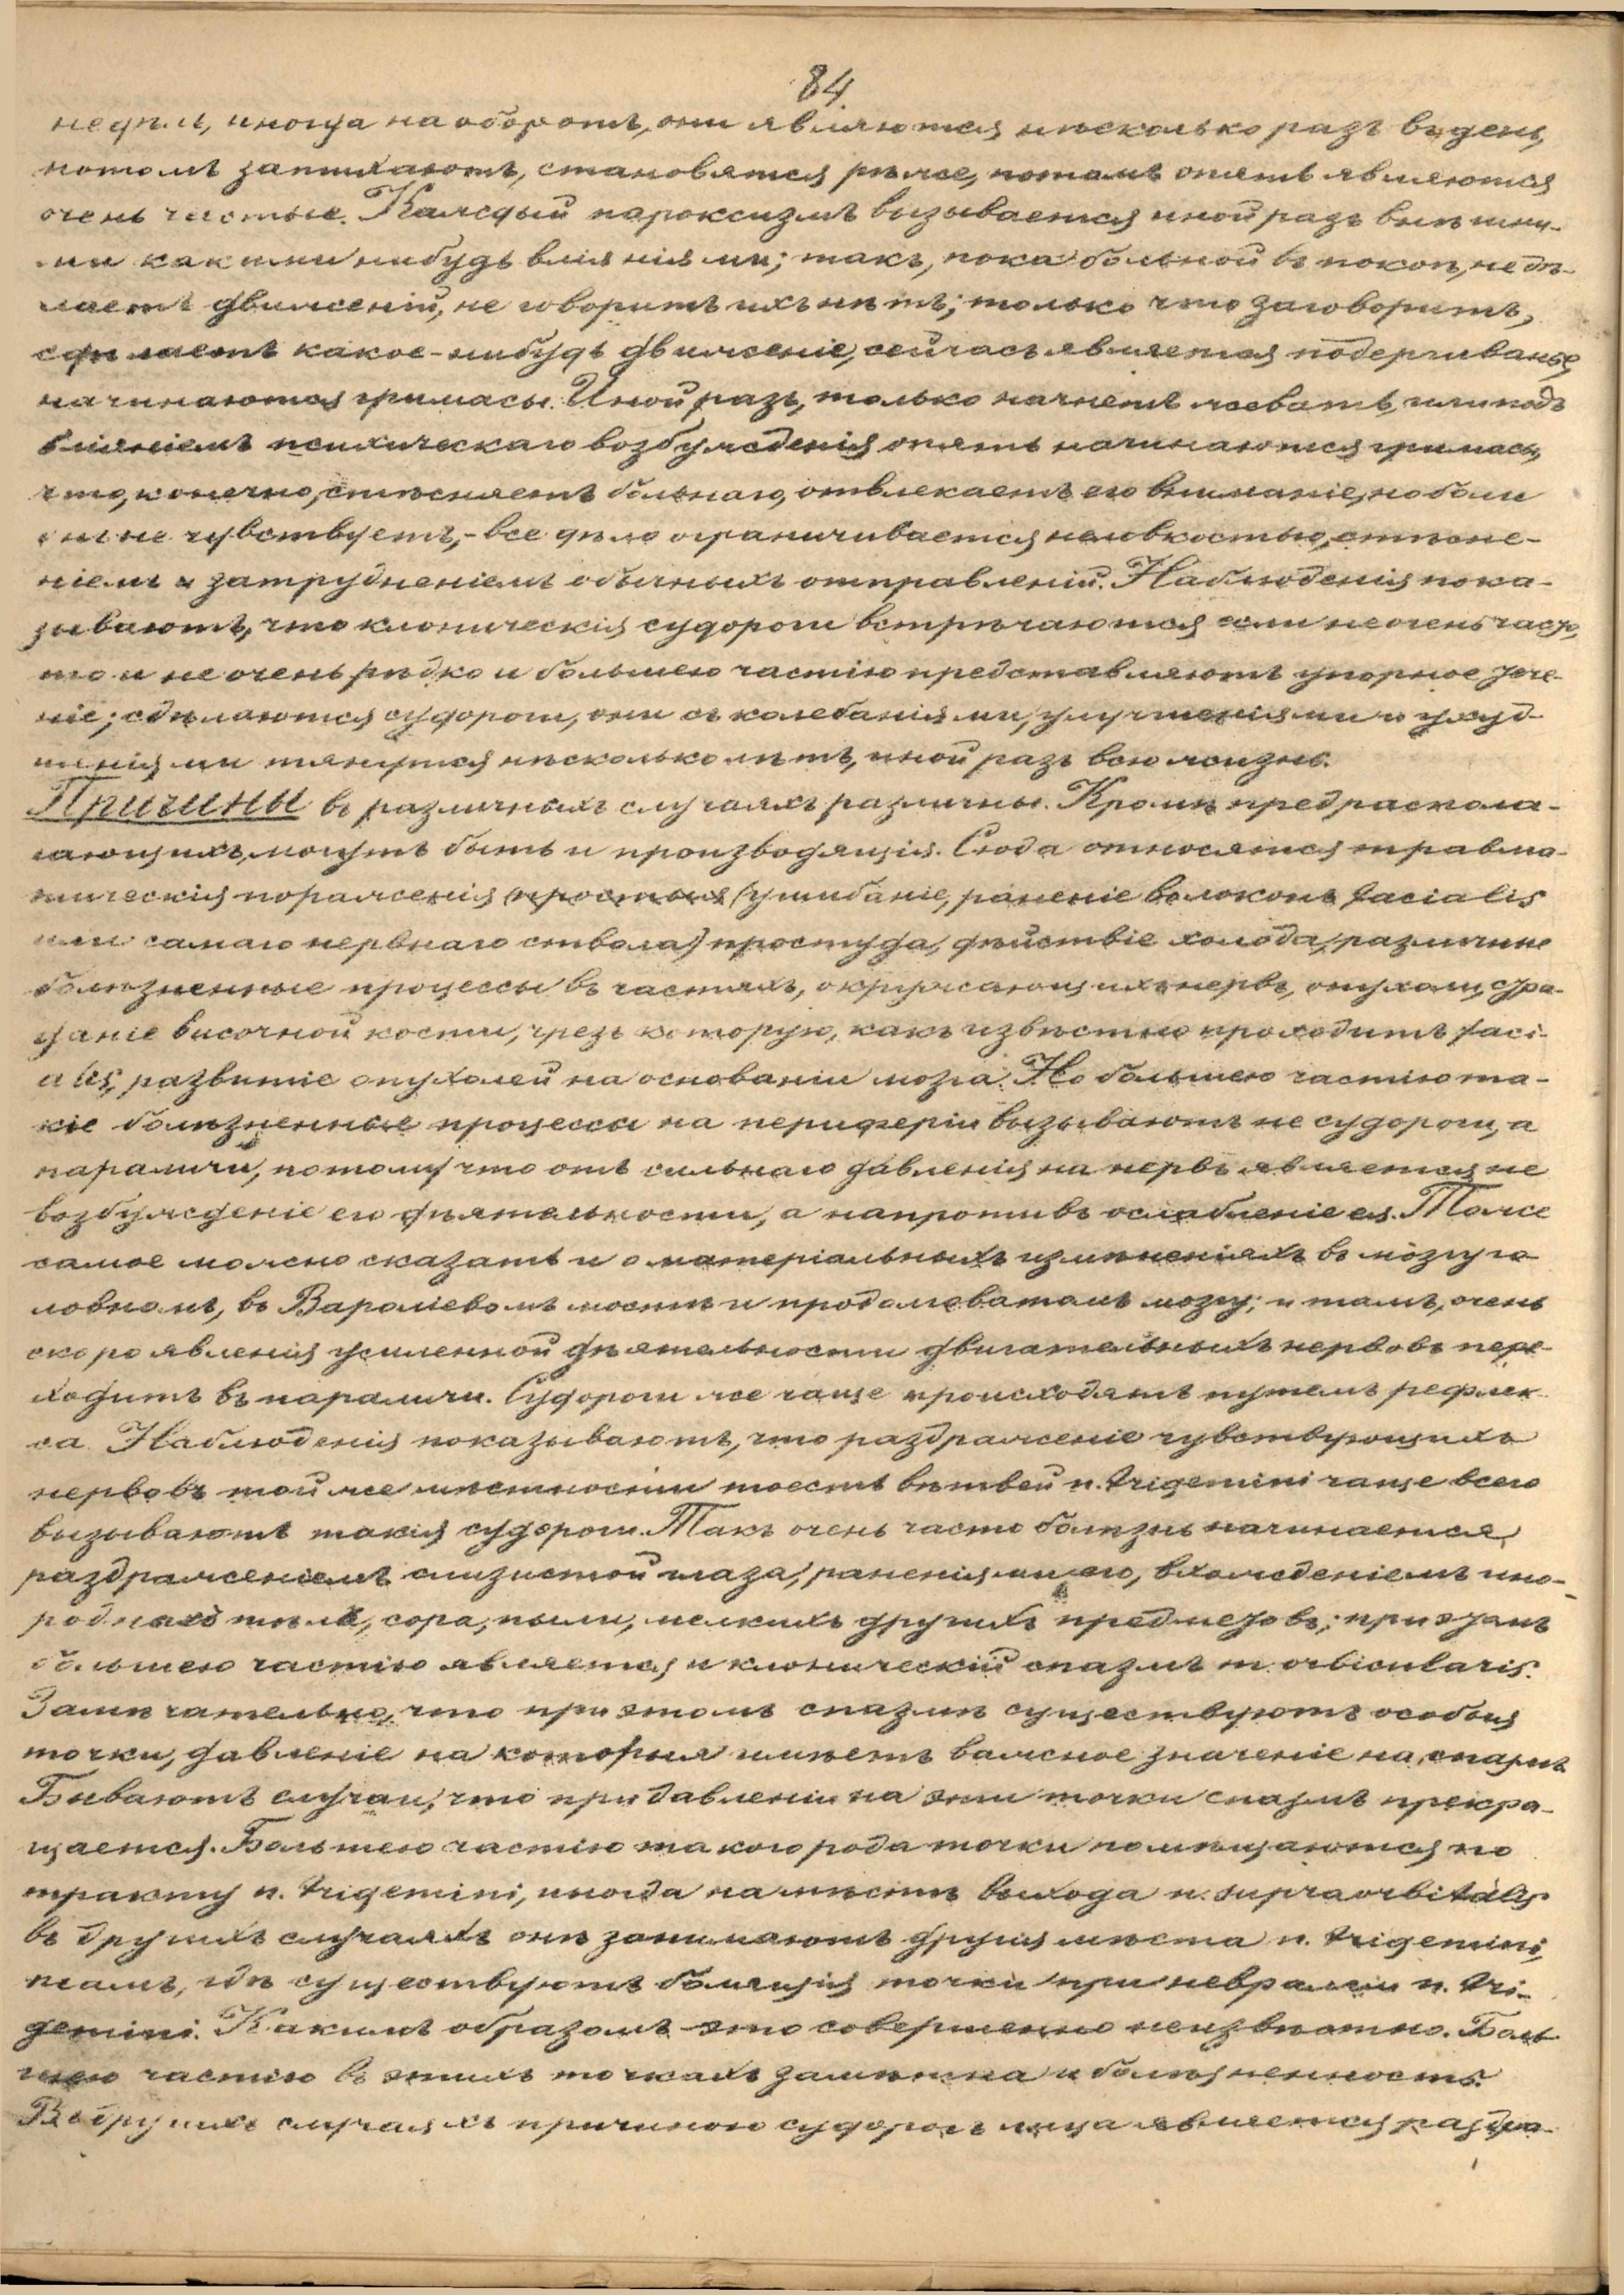 84
недѣли, иногда наоборотъ, они являются нѣсколько разъ въ день,
потомъ затихаютъ, становятся рѣже, потомъ опять являются
очень частые. Каждый пароксизмъ вызывается иной разъ внѣшни-
ми какими нибудь вліяніями; такъ, пока больной въ покоѣ, не дѣ-
лаетъ движеній, не говоритъ ихъ нѣтъ; только что заговоритъ,
сдѣлаетъ какое-нибудь движеніе, сейчасъ является подергиванье,
начинаются гримасы. Иной разъ, только начнетъ жевать, или подъ
вліяніемъ психическаго возбужденія опять начинаются гримасы,
что, конечно, стѣсняетъ больнаго, отвлекаетъ его вниманіе, но боли
онъ не чувствуетъ, - все дѣло ограничивается неловкостью, стѣсне-
ніемъ и затрудненіемъ обычныхъ отправленій. Наблюденія пока-
зываютъ, что клоническія судороги встрѣчаются если не очень часто,
то и не очень рѣдко и большею частію представляютъ упорное тече-
ніе; сдѣлаются судороги, они съ колебаніями, улучшеніями и ухуд-
шеніями тянутся нѣсколько лѣтъ, иной разъ всю жизнь.
Причины въ различныхъ случаяхъ различны. Кромѣ предраспола-
гающихъ, могутъ быть и производящія. Сюда относятся травма-
тическія пораженія (простыя (ушибаніе, раненіе волоконъ facialis
или самаго нервнаго ствола) простуда, дѣйствіе холода, различные
болѣзненные процессы въ частяхъ, окружающихъ нервъ, опухоли, стра-
даніе височной кости, чрезъ которую, какъ извѣстно проходитъ faci-
alis, развитіе опухолей на основаніи мозга. Но большею частію та-
кіе болѣзненные процессы на периферіи вызываютъ не судороги, а
параличи, потому что отъ сильнаго давленія на нервъ является не
возбужденіе его дѣятельности, а напротивъ ослабленіе ея. Тоже
самое можно сказать и о матеріальныхъ измѣненіяхъ въ мозгу го-
ловномъ, въ Вароліевомъ мостѣ и продолговатомъ мозгу; и тамъ, очень
скоро явленія усиленной дѣятельности двигательныхъ нервовъ пере-
ходитъ въ параличи. Судороги же чаще происходятъ путемъ рефлек-
са. Наблюденія показываютъ, что раздраженіе чувствующихъ
нервовъ той же мѣстности тоесть вѣтвей n. trigemini чаще всего
вызываютъ такія судороги. Такъ очень часто болѣзнь начинается,
раздраженіемъ слизистой глаза, раненіями его, вхожденіемъ ино-
родныхъ тѣлъ, сора, пыли, мелкихъ другихъ предметовъ; при этомъ
большею частію является и клоническій спазмъ m. orbicularis.
Замѣчательно, что при этомъ спазмѣ существуютъ особыя
точки, давленіе на которыя имѣетъ важное значеніе на спазмъ
Бываютъ случаи, что при давленіи на эти точки спазмъ прекра-
щается. Большею частію такого рода точки помѣщаются по
тракту n. trigemini, иногда на мѣстѣ выхода n. supraorbitalis
въ другихъ случаяхъ онѣ занимаютъ другія мѣста n. trigemini,
тамъ, гдѣ существуютъ болящія точки при невралгіи n. tri-
gemini. Какимъ образомъ это совершенно неизвѣстно. Боль-
шею частію въ этихъ точкахъ замѣтна и болѣзненность.
Въ другихъ случаяхъ причиною судорогъ лица является раздра-